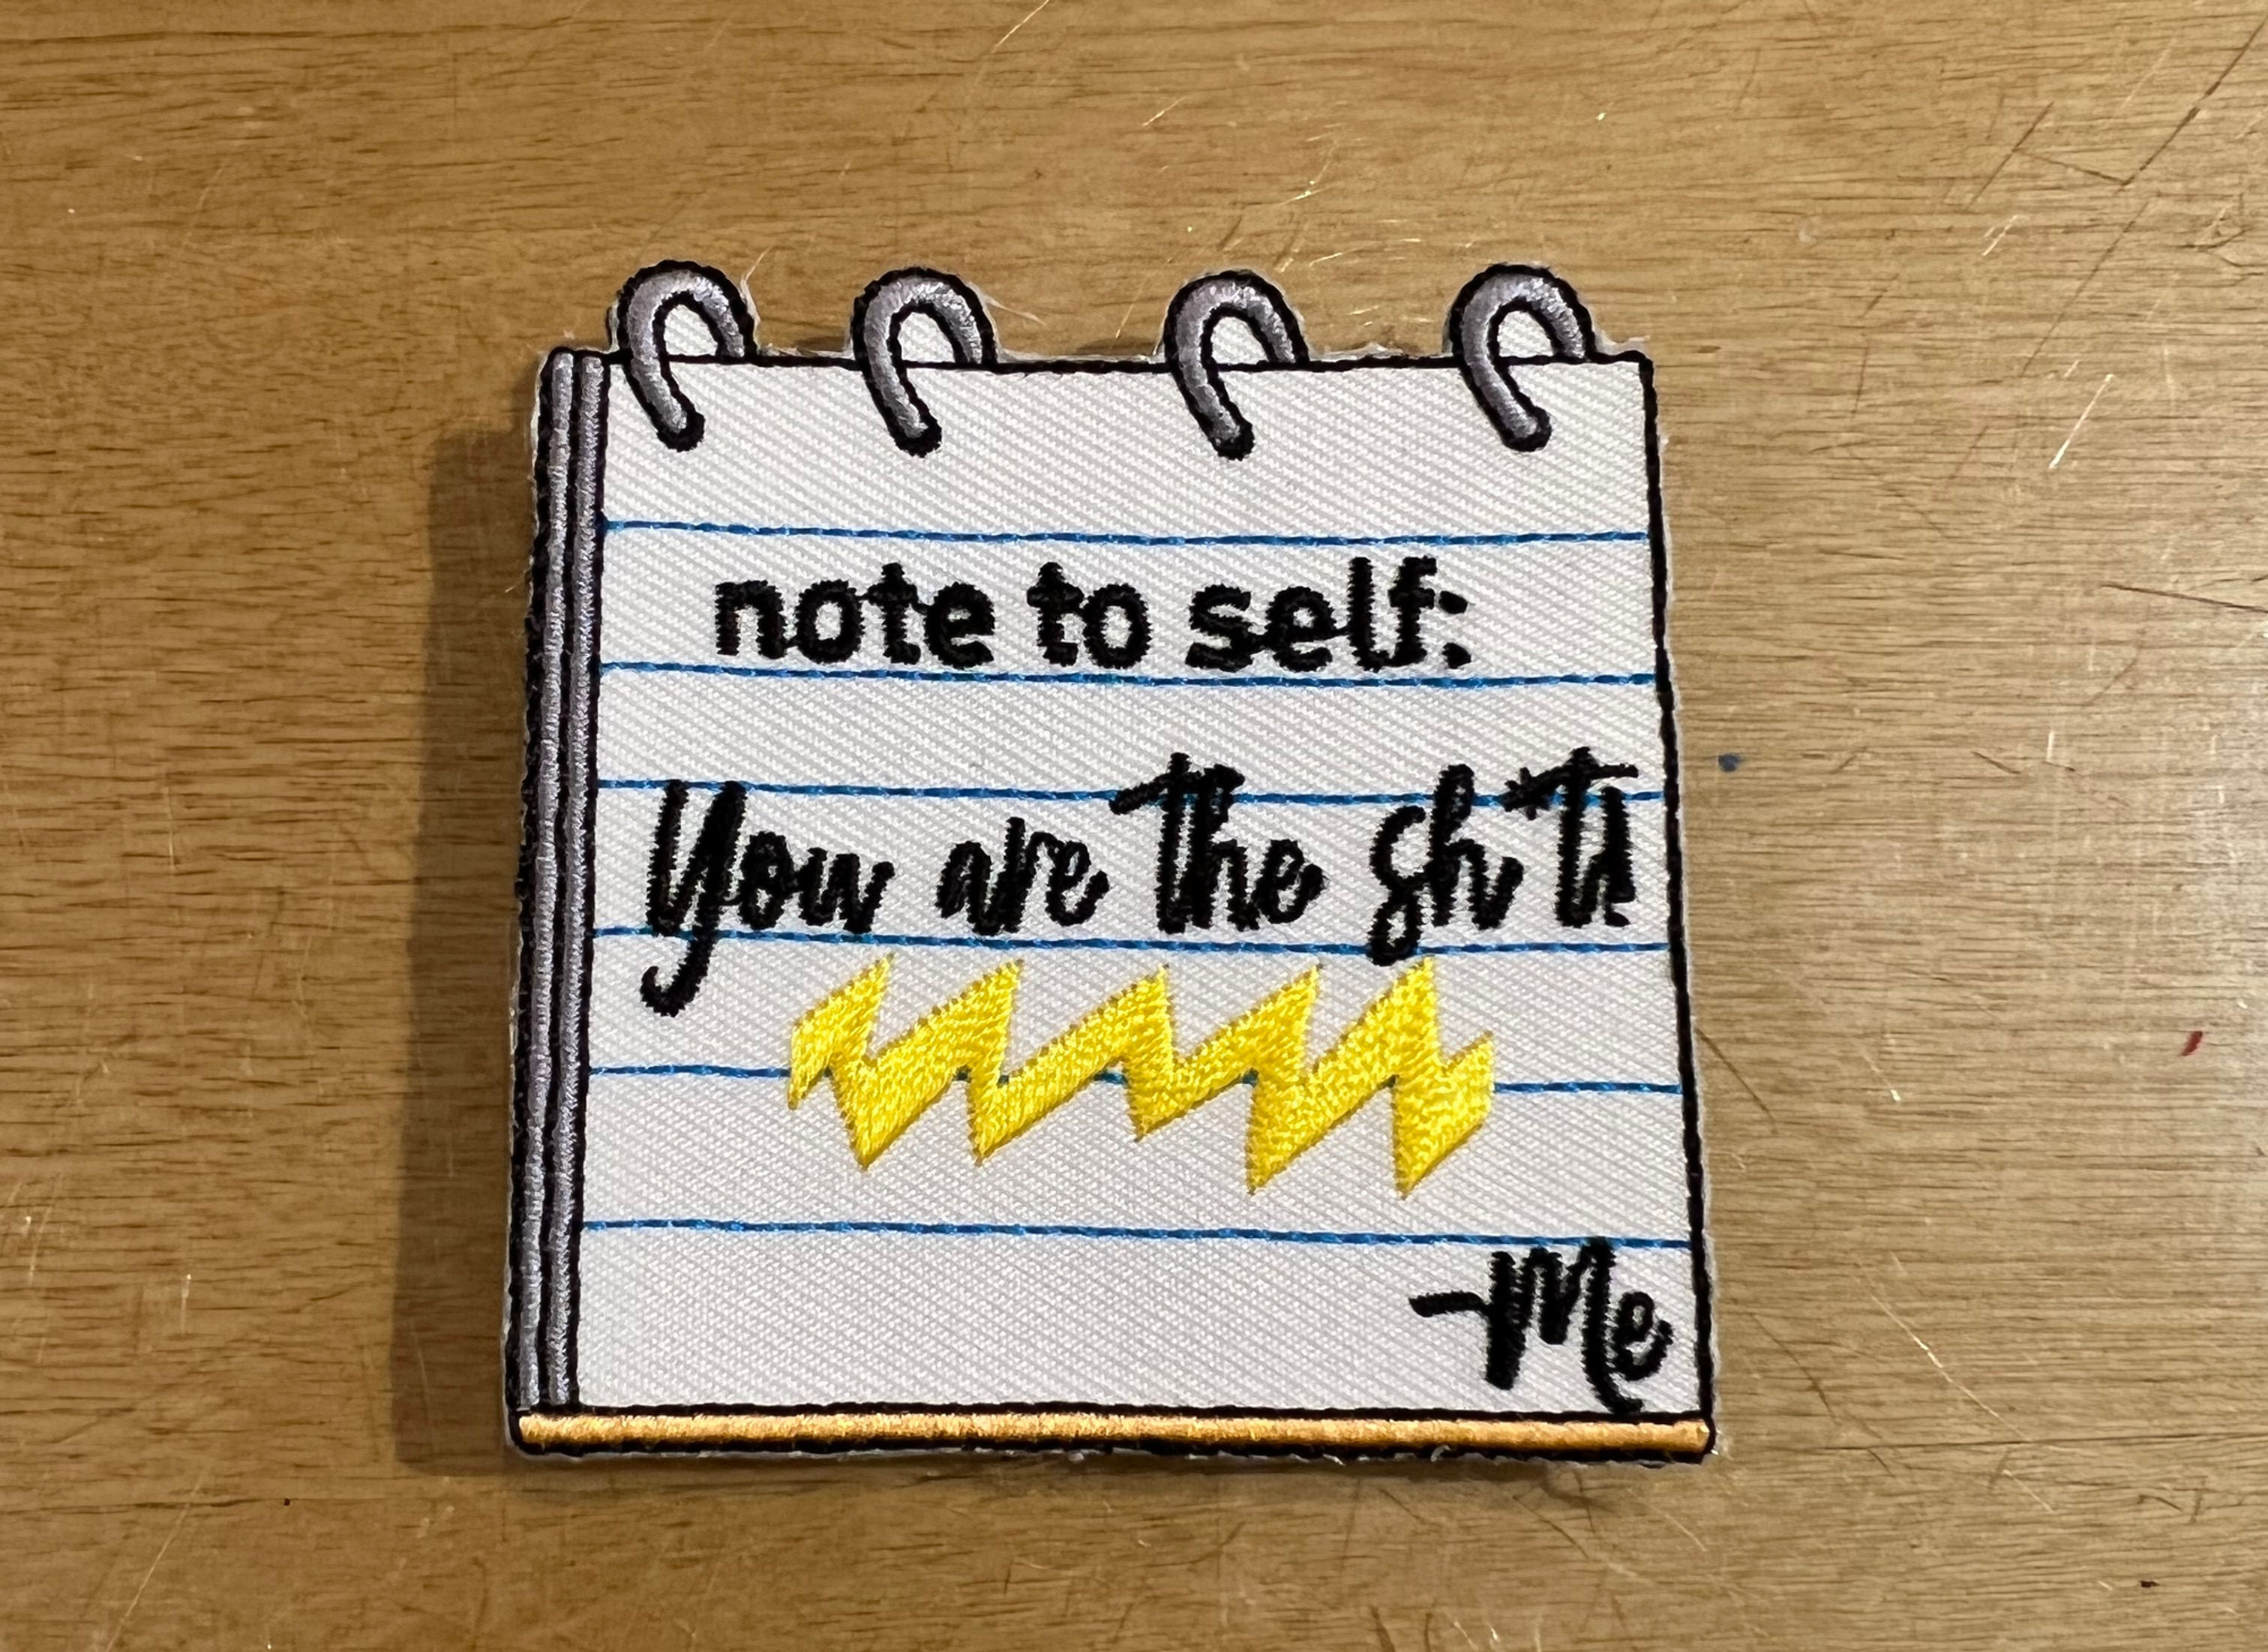 note to self:
You are the sh*t!
-Me